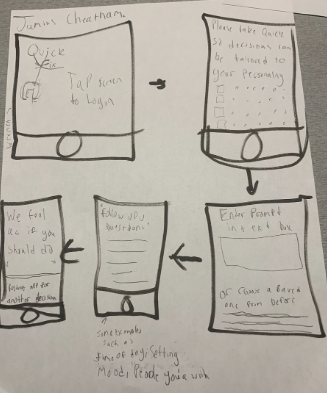 Junius Cheatham
Quick
Fix
Tap screen
to Login
Please take Quick
so decisions can
be tailored to
your personality
Enter Prompt
in text box
or choose a saved
one from before
"Follow up
questions"
Some examples
such as
time of day, setting
Mood, People you're with
We feel
as if you
should do
another decision